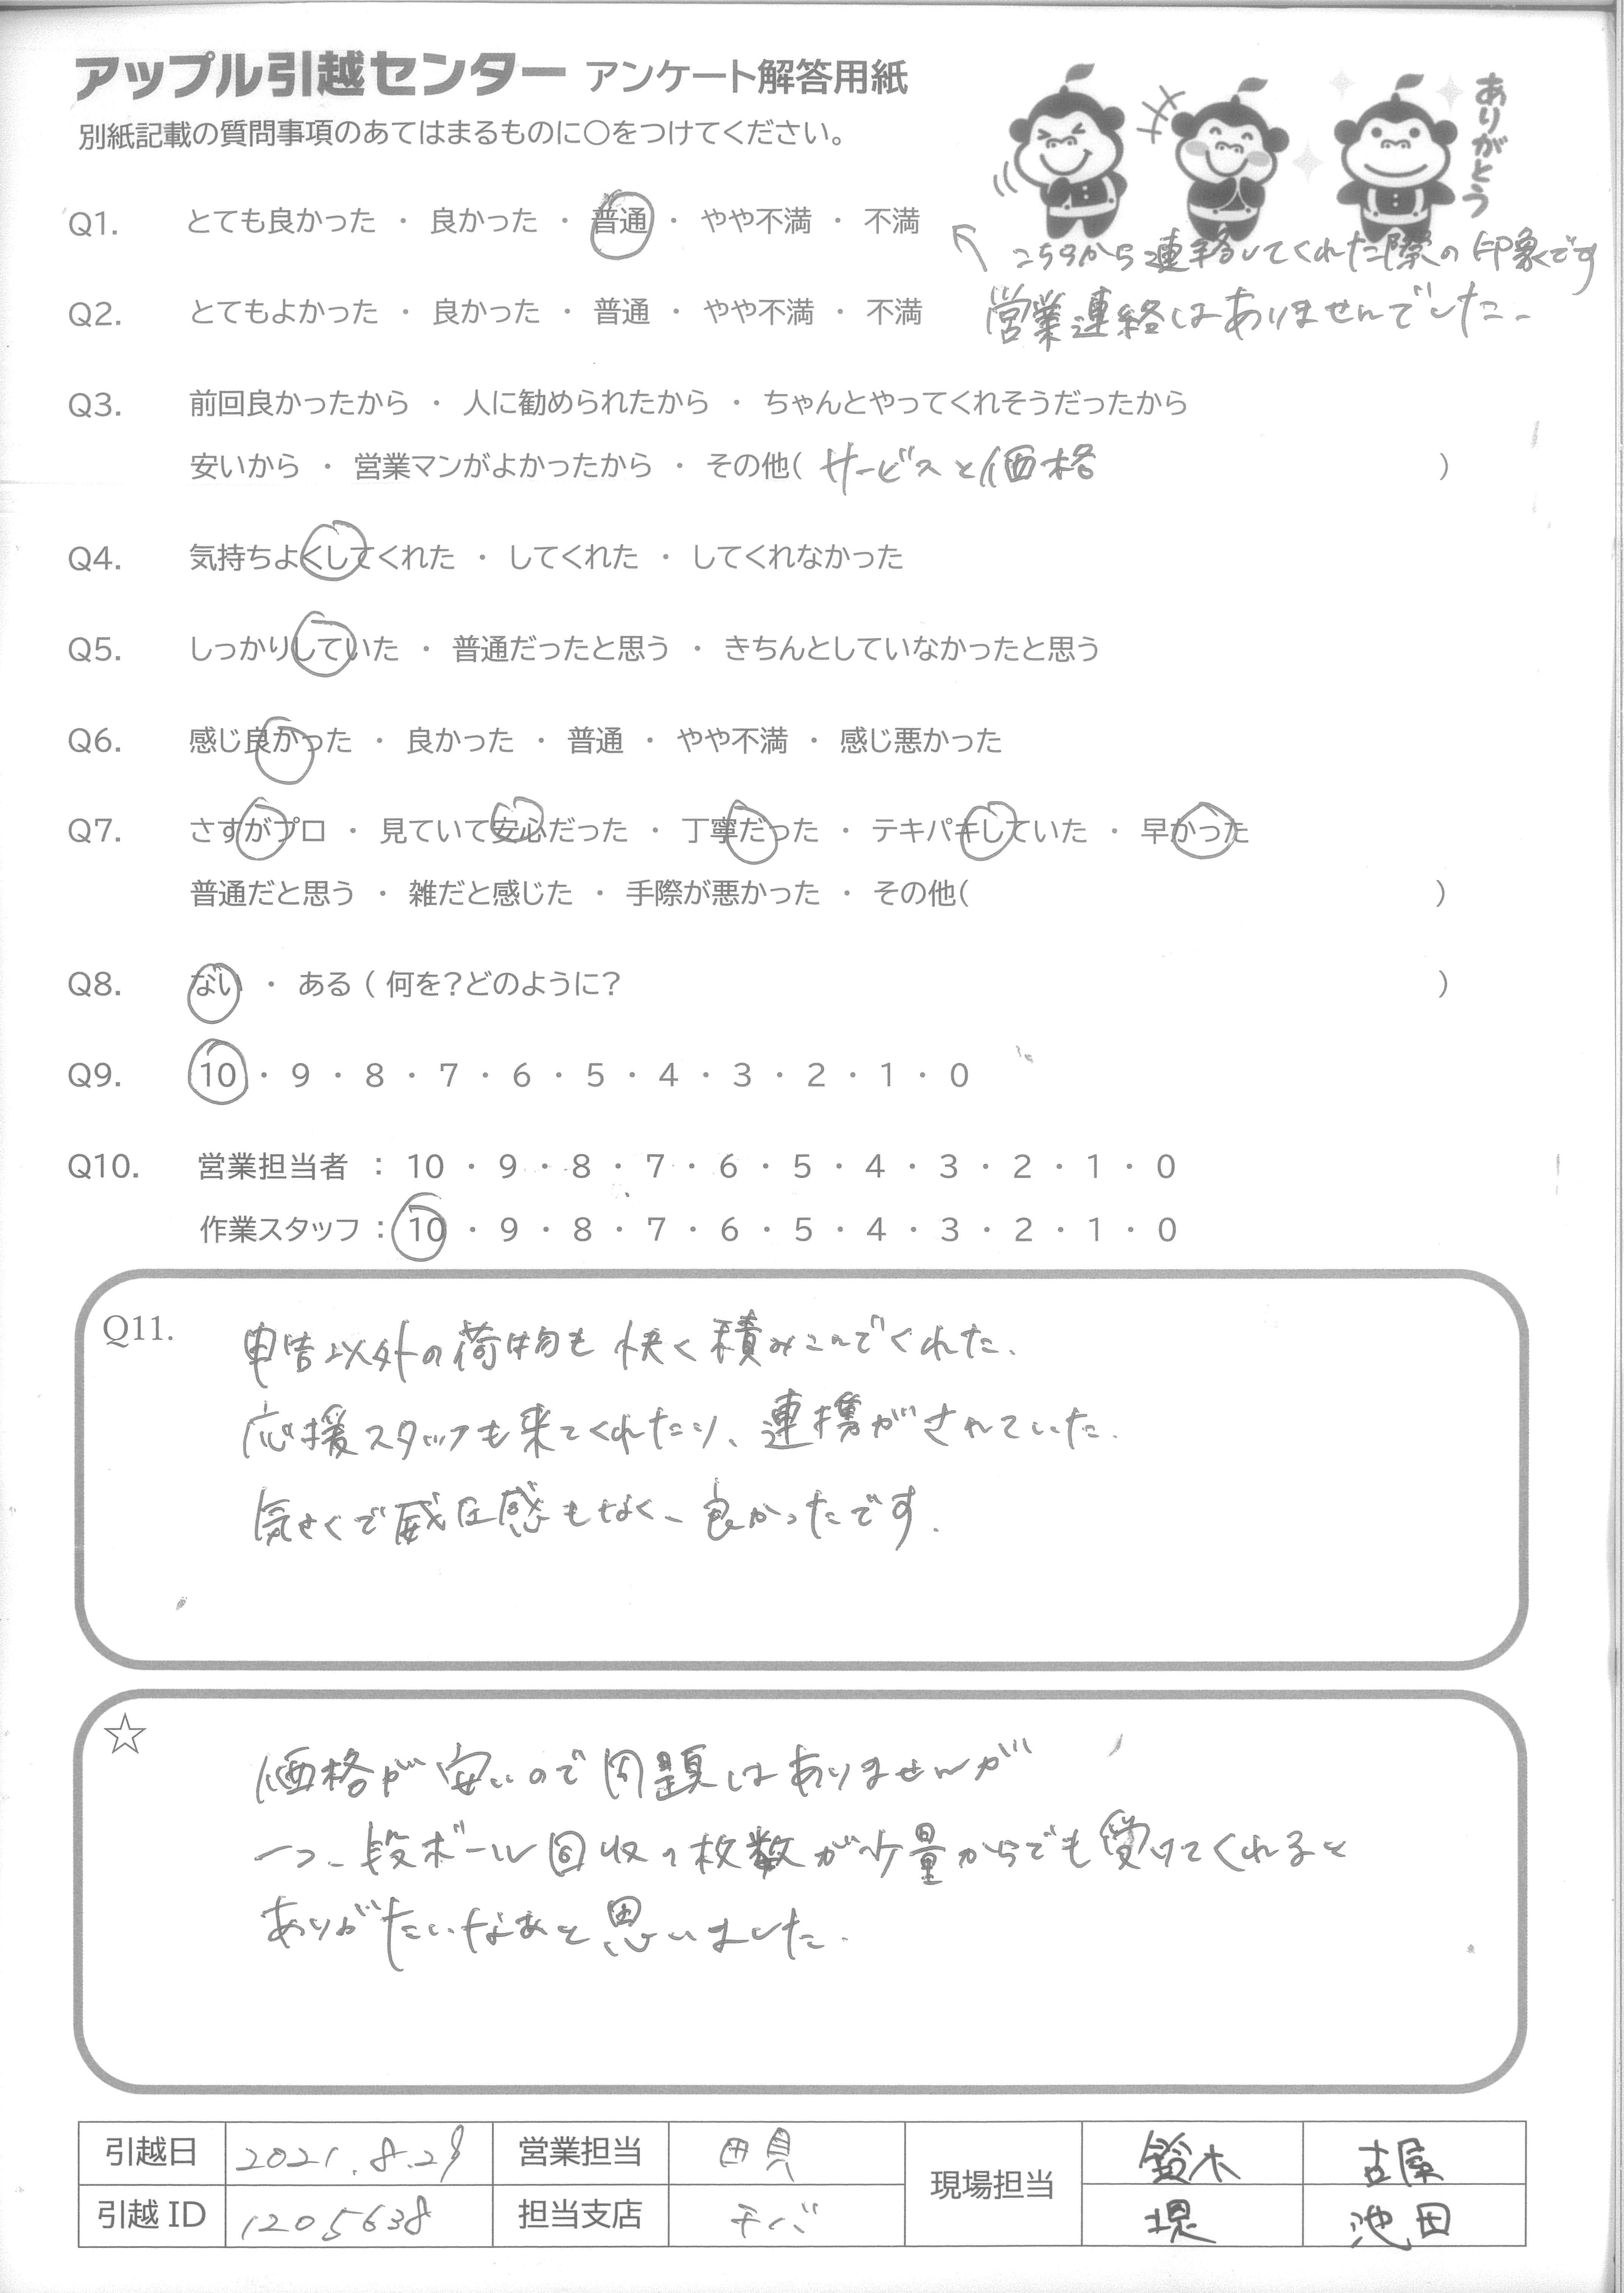 アップル引越センター アンケート解答用紙
別紙記載の質問事項のあてはまるものに○をつけてください。
ありがとう
Q1. とても良かった ・ 良かった ・ 普通 ・ やや不満 ・ 不満
こちらから連絡してくれた際の印象です
Q2. とてもよかった ・ 良かった ・ 普通 ・ やや不満 ・ 不満
営業連絡はありませんでした。
Q3. 前回良かったから ・ 人に勧められたから ・ ちゃんとやってくれそうだったから
安いから ・ 営業マンがよかったから ・ その他( サービスと価格 )
Q4. 気持ちよくしてくれた ・ してくれた ・ してくれなかった
Q5. しっかりしていた ・ 普通だったと思う ・ きちんとしていなかったと思う
Q6. 感じ良かった ・ 良かった ・ 普通 ・ やや不満 ・ 感じ悪かった
Q7. さすがプロ ・ 見ていて安心だった ・ 丁寧だった ・ テキパキしていた ・ 早かった
普通だと思う ・ 雑だと感じた ・ 手際が悪かった ・ その他( )
Q8. ない ・ ある ( 何を?どのように? )
Q9. 10 ・ 9 ・ 8 ・ 7 ・ 6 ・ 5 ・ 4 ・ 3 ・ 2 ・ 1 ・ 0
Q10. 営業担当者 : 10 ・ 9 ・ 8 ・ 7 ・ 6 ・ 5 ・ 4 ・ 3 ・ 2 ・ 1 ・ 0
作業スタッフ : 10 ・ 9 ・ 8 ・ 7 ・ 6 ・ 5 ・ 4 ・ 3 ・ 2 ・ 1 ・ 0
Q11. 申告以外の荷物も快く積みこんでくれた。
応援スタッフも来てくれたり、連携がされていた。
気さくで威圧感もなく、良かったです。
☆ 価格が安いので問題はありませんが
一つ、段ボール回収の枚数が少量からでも受けてくれると
ありがたいなあと思いました。
引越日 2021.8.29 営業担当 現場担当 鈴木 古屋
引越 ID 1205638 担当支店 チバ 堤 池田